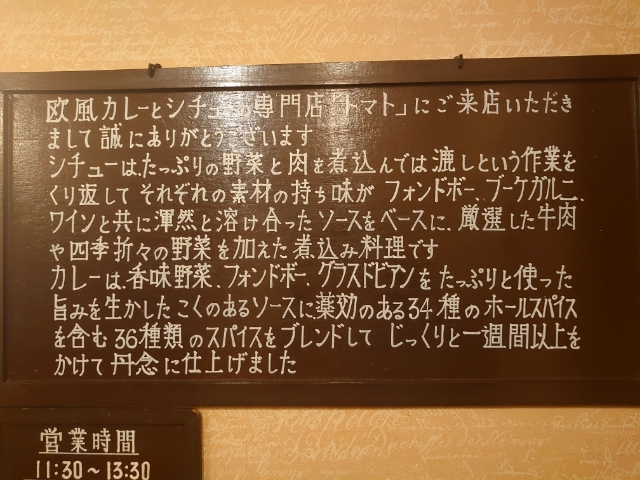 欧風カレーとシチューの専門店「トマト」にご来店いただき
まして誠にありがとうございます
シチューは、たっぷりの野菜と肉を煮込んでは漉しという作業を
くり返して それぞれの素材の持ち味が フォンドボー、ブーケガルニ、
ワインと共に渾然と溶け合ったソースをベースに、厳選した牛肉
や四季折々の野菜を加えた煮込み料理です
カレーは、香味野菜、フォンドボー、グラスドビアンをたっぷりと使った
旨みを生かしたこくのあるソースに薬効のある34種のホールスパイス
を含む36種類のスパイスをブレンドして じっくりと一週間以上を
かけて丹念に仕上げました
営業時間
11:30～13:30